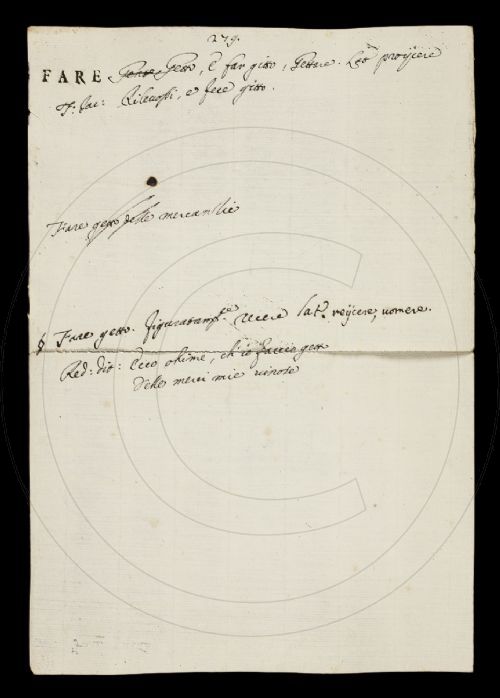 279.
FARE Getto, e far gitto, Gettare. Latᵒ proijcere
F. Jac: Rilevossi, e fece gitto.
Fare getto delle mercanzie
§ Fare getto. figuratamᵗᵉ Recere Latᵒ. reijcere, vomere.
Red: dit: Ecco ohimè, ch'io faccio getto
Delle merci mie vinose